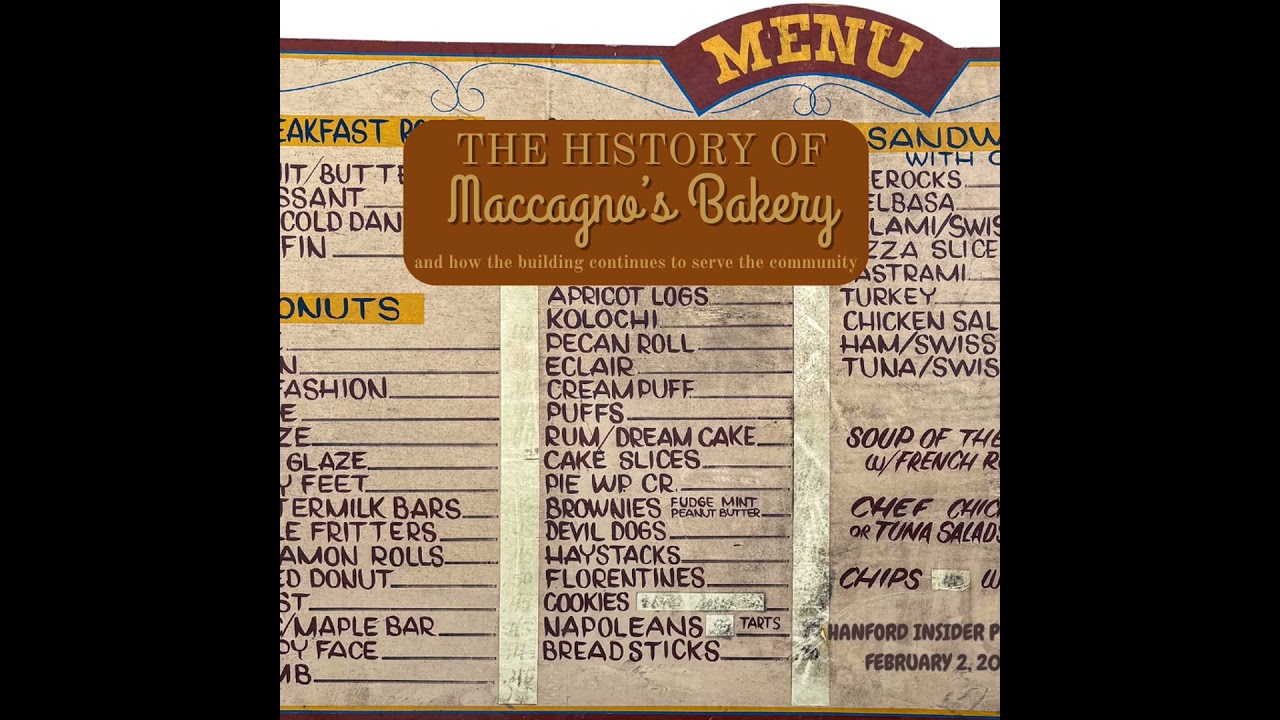 MENU
THE HISTORY OF
Maccagno's Bakery
and how the building continues to serve the community
EAKFAST
IT/BUTTE
SSANT
COLD DAN
FIN
ONUTS
N
FASHION
E
ZE
GLAZE
Y FEET
TERMILK BARS
LE FRITTERS
AMON ROLLS
ED DONUT
ST
/MAPLE BAR
PY FACE
MB
APRICOT LOGS
KOLOCHI
PECAN ROLL
ECLAIR
CREAM PUFF
PUFFS
RUM/DREAM CAKE
CAKE SLICES
PIE WP. CR.
BROWNIES FUDGE MINT
PEANUT BUTTER
DEVIL DOGS
HAYSTACKS
FLORENTINES
COOKIES
NAPOLEANS TARTS
BREADSTICKS
SANDW
WITH C
EROCKS
ELBASA
LAMI/SWIS
ZZA SLICE
ASTRAMI
TURKEY
CHICKEN SAL
HAM/SWISS
TUNA/SWIS
SOUP OF THE
W/FRENCH R
CHEF CHIC
OR TUNA SALADS
CHIPS W
HANFORD INSIDER P
FEBRUARY 2, 20